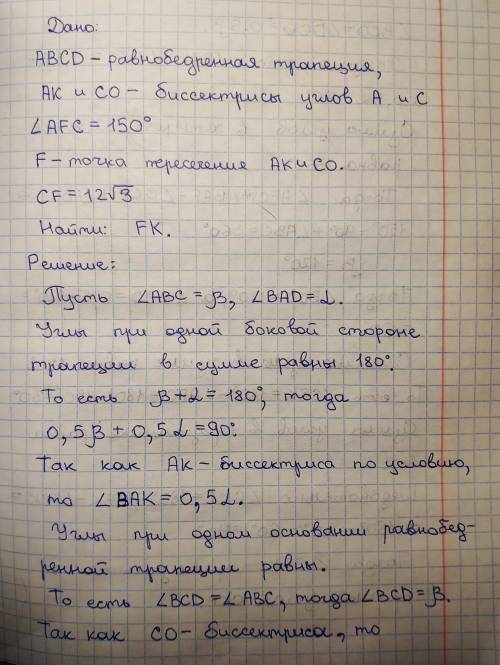 Дано:
ABCD – равнобедренная трапеция,
AK и CO – биссектрисы углов A и C
∠AFC = 150°
F – точка пересечения AK и CO.
CF = 12√3
Найти: FK.
Решение:
Пусть ∠ABC = β, ∠BAD = α.
Углы при одной боковой стороне
трапеции в сумме равны 180°.
То есть β + α = 180°, тогда
0,5β + 0,5α = 90°.
Так как AK – биссектриса по условию,
то ∠BAK = 0,5α.
Углы при одном основании равнобед-
ренной трапеции равны.
То есть ∠BCD = ∠ABC, тогда ∠BCD = β.
Так как CO – биссектриса, то